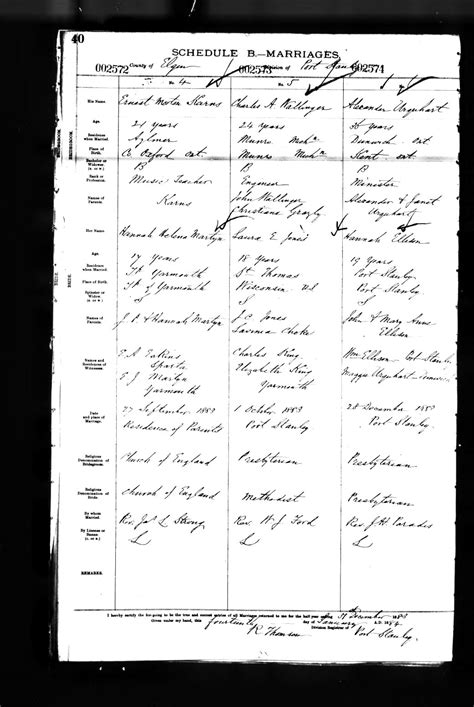 40
SCHEDULE B.—MARRIAGES.
County of Elgin Division of Port Stanley
002572 002573 002574
No. 4 No. 5 6
His Name Ernest Karns Charles A Wallinger Alexander Urquhart
Age 21 years 24 years 36 years
Residence when Married Aylmer Munro Mich Dunwich Ont
Place of Birth Oxford Ont Munro Mich Kent Ont
Bachelor or Widower (B. or W.) B B B
Rank or Profession Music Teacher Engineer Minister
Names of Parents Karns John Wallinger Alexander & Janet
Christiana Urquhart
Her Name Hannah Helena Martyn Laura E Jones Hannah Ellison
Age 17 years 18 years 19 years
Residence when Married Tp Yarmouth St Thomas Port Stanley
Place of Birth Tp of Yarmouth Wisconsin US Port Stanley
Spinster or Widow (S. or W.) S S S
Names of Parents J. P. & Hannah Martyn J C Jones John & Mary Anne
Lavinia Ellison
Names and Residences of Witnesses E A Charles King Wm Ellison Port Stanley
Sparta Elizabeth King Maggie Urquhart
E J Martyn Yarmouth
Yarmouth
Date and place of Marriage 27 September 1883 1 October 1883 28 December 1883
Residence of Parents Port Stanley Port Stanley
Religious Denomination of Bridegroom Church of England Presbyterian Presbyterian
Religious Denomination of Bride Church of England Methodist Presbyterian
By whom Married Rev Jas L Strong Rev W J Ford Rev J H Paradis
By License or Banns (L. or B.) L L L
REMARKS.
I hereby certify the foregoing to be the true and correct entries of all Marriages returned to me for the half year ending 31 December 1883
Given under my hand, this fourteenth day of January A.D. 1884
R Thomson Division Registrar of Port Stanley